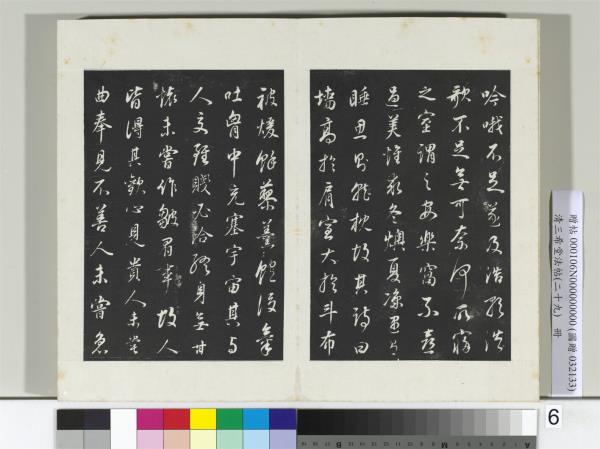 吟哦不足遂及浩歌浩
歌不足無可奈何所寢
之室謂之安樂窩不求
過美惟求冬燠夏涼遇有
睡思則就枕故其詩曰
墻高於肩室大於斗布
被煖餘藜羹飽後氣
吐胷中充塞宇宙其與
人交雖賤必洽終身無甘
壞未嘗作皺眉事故人
皆得其歡心見貴人未嘗
曲奉見不善人未嘗急
贈帖 000106N000000000 (圖贈 032133)
清三希堂法帖(二十九) 冊
6